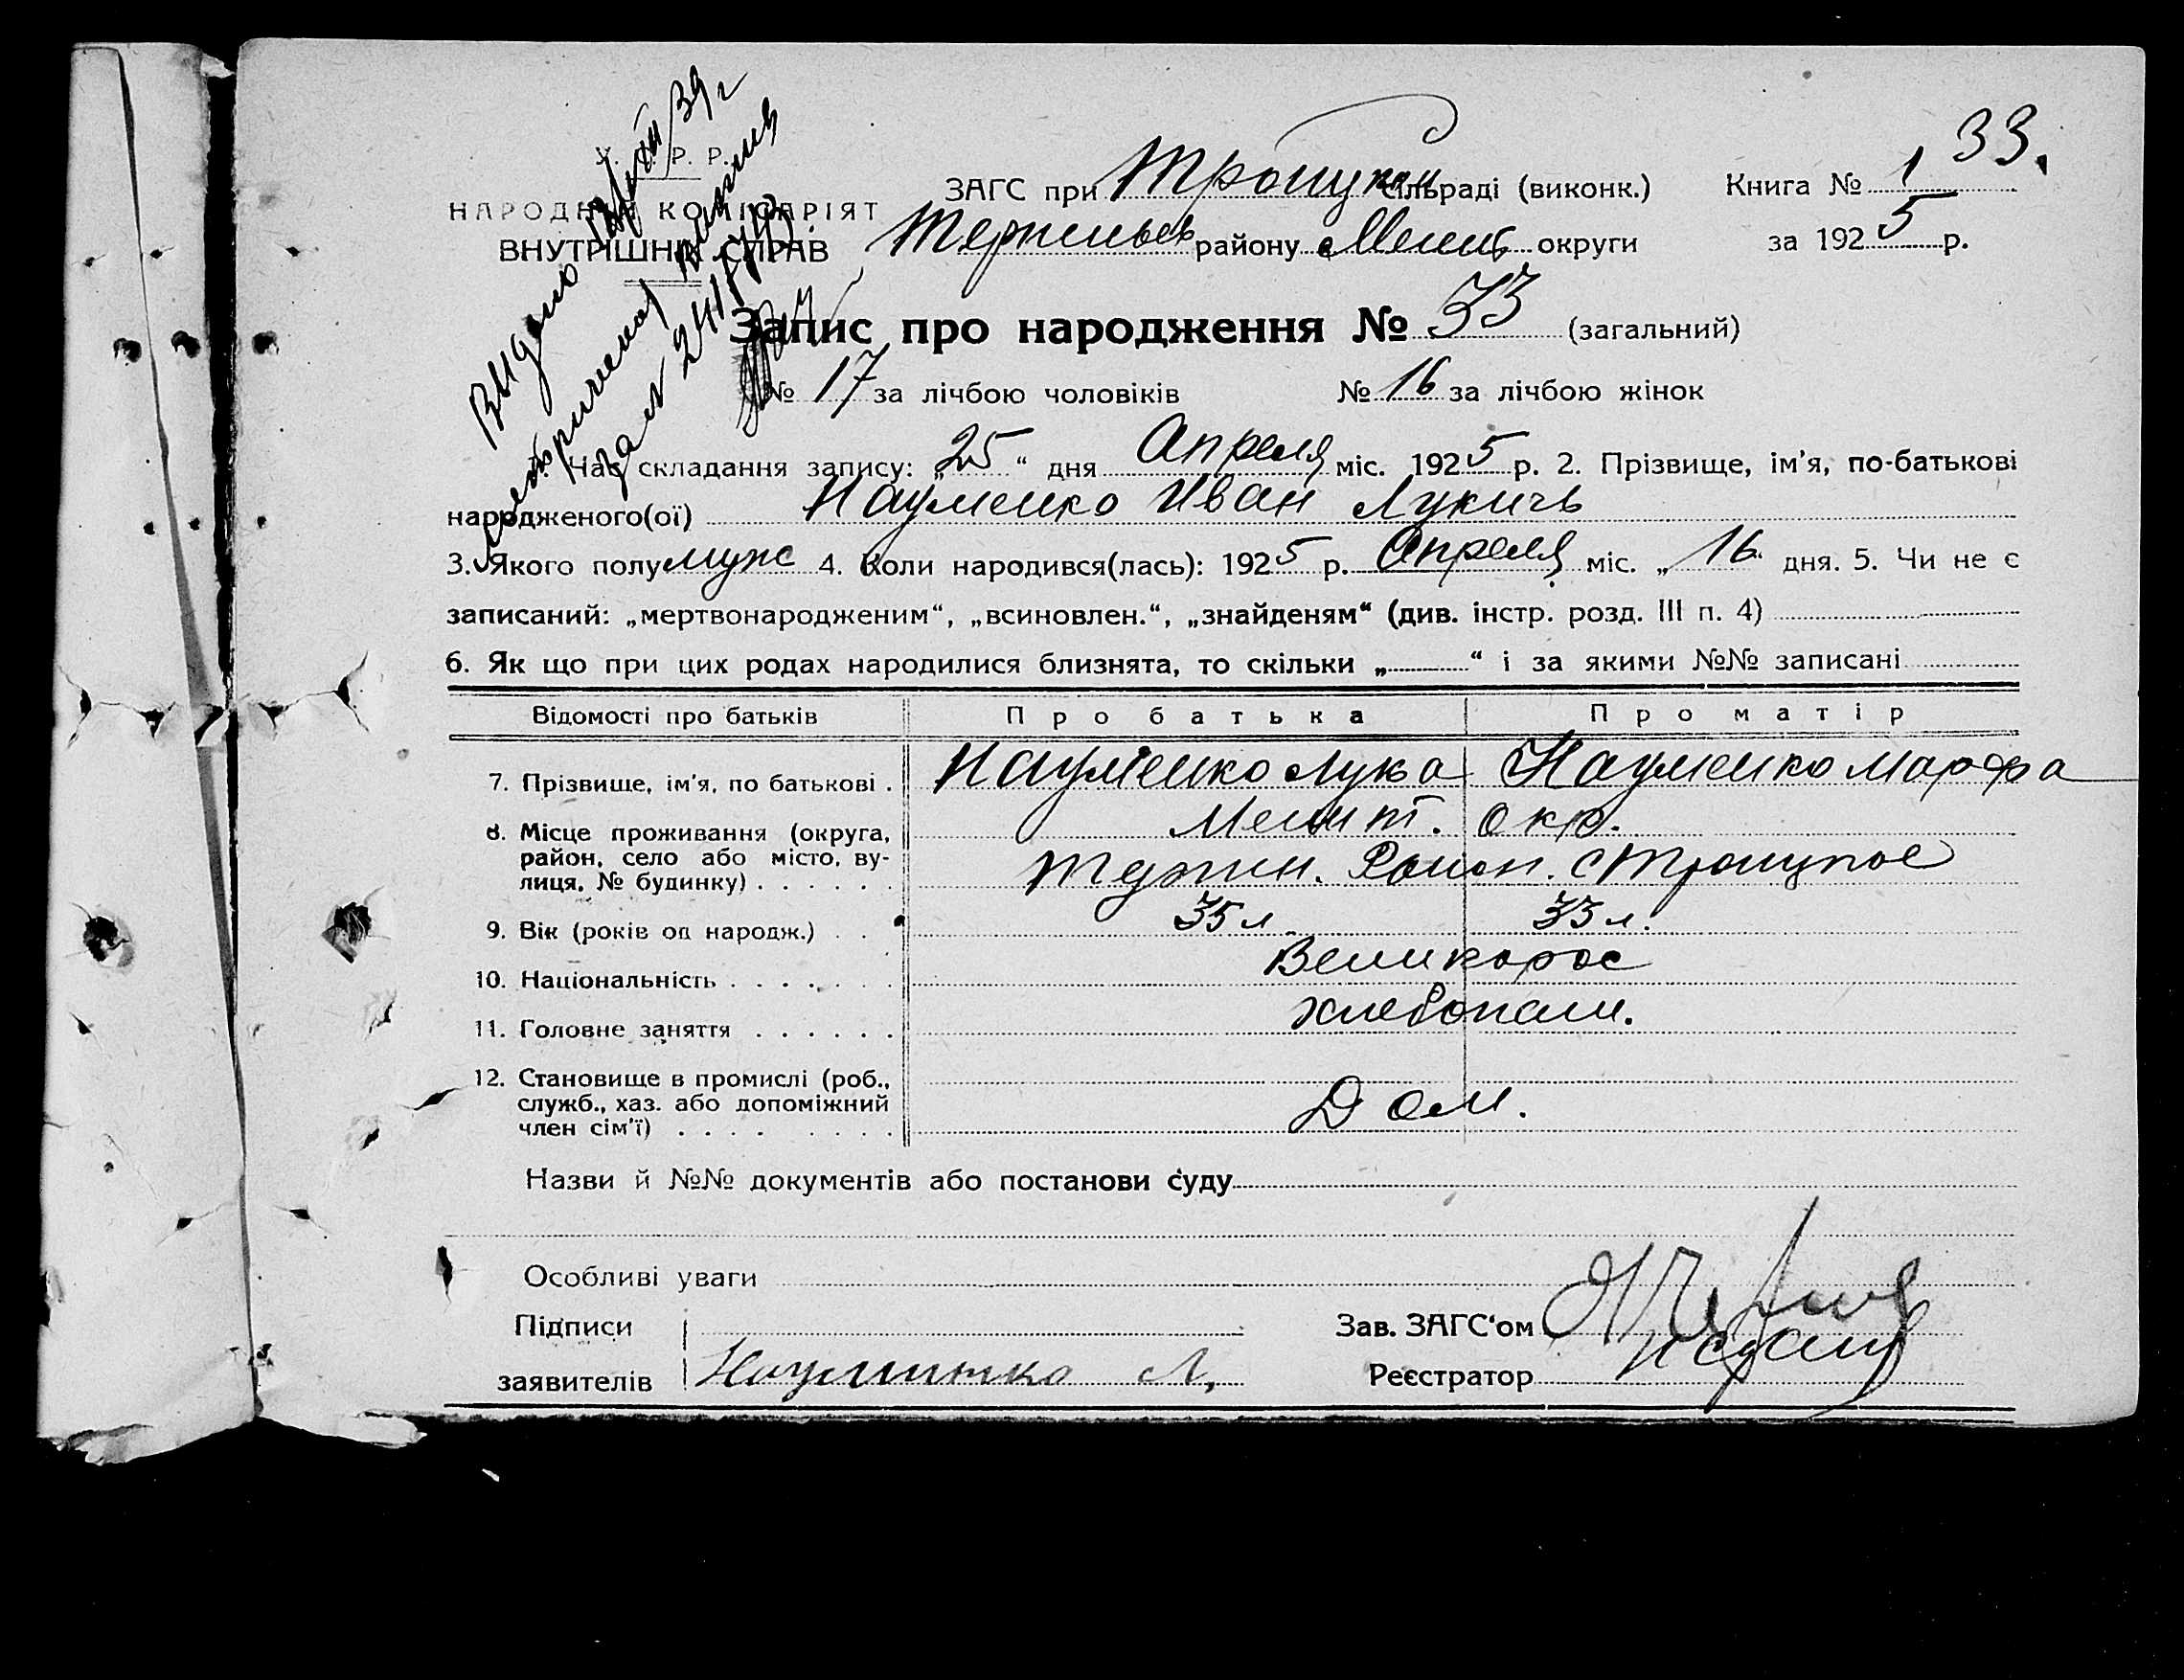 33.
У. С. Р. Р.
НАРОДНІЙ КОМІСАРІЯТ
ВНУТРІШНІХ СПРАВ
Выдано
ЗАГС при Троицком сільраді (виконк.) Книга № 1
району Мелит округи за 1925 р.
Запис про народження № 33 (загальний)
№ 17 за лічбою чоловіків № 16 за лічбою жінок
Час складання запису: „25“ дня Апреля міс. 1925 р. 2. Прізвище, ім'я, по-батькові
народженого(ої) Науменко Иван Лукичь
3. Якого полу муж 4. Коли народився(лась): 1925 р. Апреля міс. „16“ дня. 5. Чи не є
записаний: „мертвонародженим“, „всиновлен.“, „знайденям“ (див. інстр. розд. III п. 4)
6. Як що при цих родах народилися близнята, то скільки „ “ і за якими №№ записані
Відомості про батьків Про батька Про матір
7. Прізвище, ім'я, по батькові . Науменко Лука Науменко Марфа
8. Місце проживання (округа, Мелит. окр.
район, село або місто, ву-
лиця, № будинку) . . . . . . Район. с Троицкое
9. Вік (років од народж.) . . . 35 л. 33 л.
10. Національність . . . . . . . Великорос
11. Головне заняття . . . . . . хлебопаш.
12. Становище в промислі (роб.,
служб., хаз. або допоміжний Дом.
член сім'ї) . . . . . . . . .
Назви й №№ документів або постанови суду
Особливі уваги
Підписи
Зав. ЗАГС'ом
заявителів Науминко Л,
Реєстратор